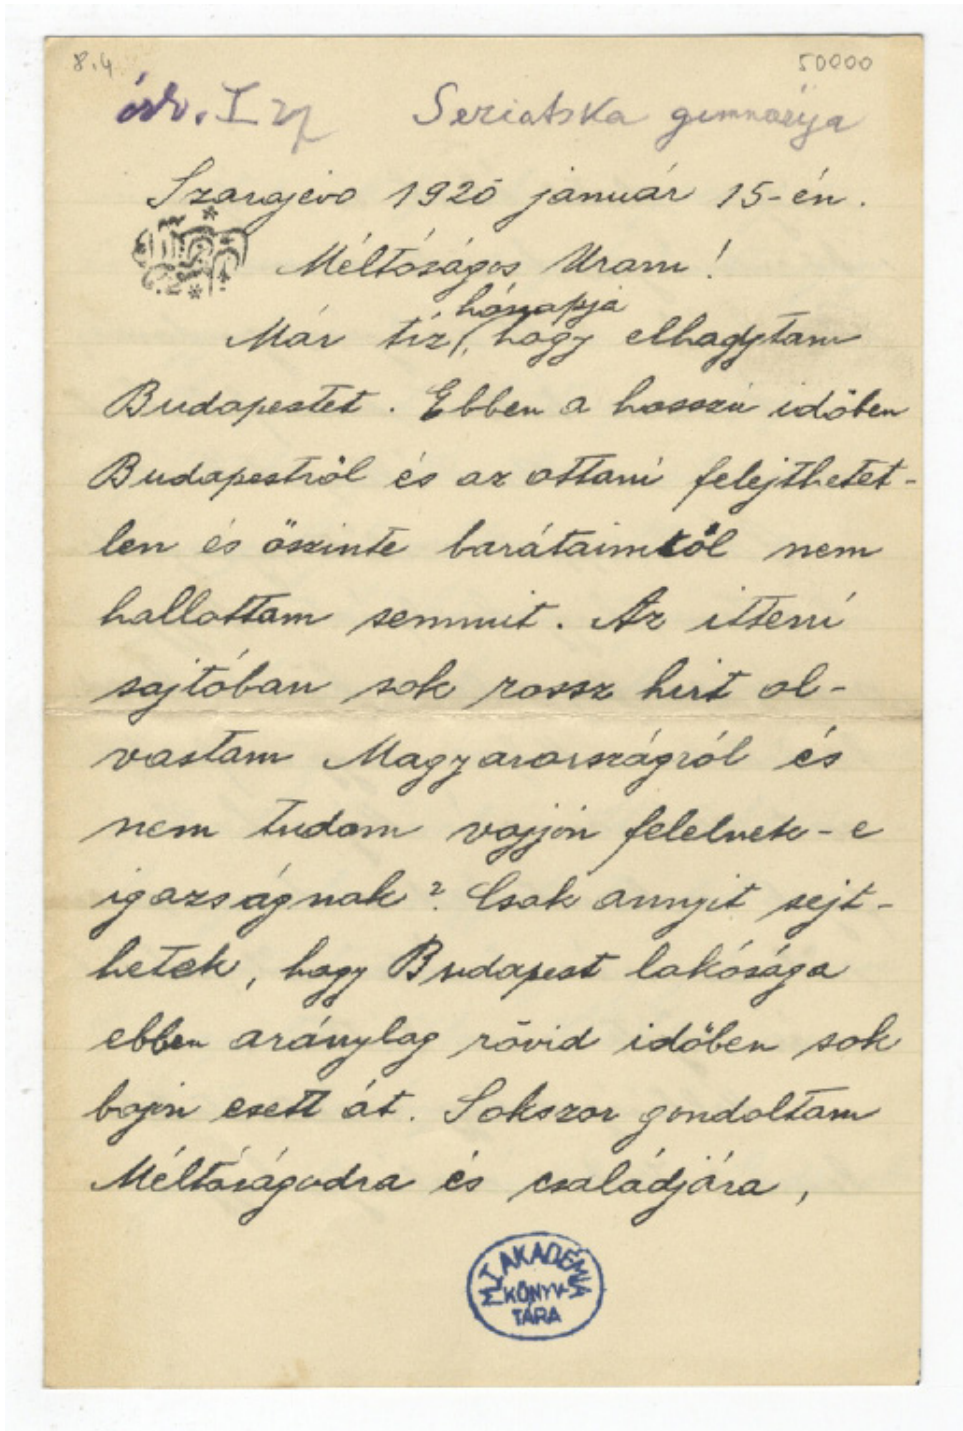 8.4 50000
Seriatska gimnazija
Szarajevo 1920 január 15-én.
Méltóságos Uram!
hónapja
Már tíz, hogy elhagytam
Budapestet. Ebben a hosszú időben
Budapestről és az ottani felejthetet-
len és őszinte barátaimtól nem
hallottam semmit. Az itteni
sajtóban sok rossz hirt ol-
vastam Magyarországról és
nem tudom vajjon felelnek-e
igazságnak? Csak annyit sejt-
hetek, hogy Budapest lakósága
ebben aránylag rövid időben sok
bajon esett át. Sokszor gondoltam
Méltóságodra és családjára,
M.T. AKADÉMIA
KÖNYV-
TÁRA